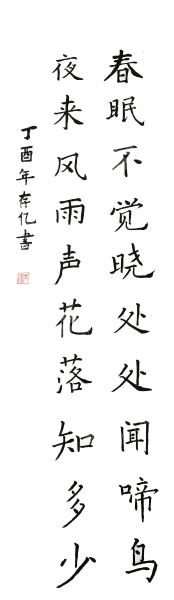 春眠不觉晓处处闻啼鸟
夜来风雨声花落知多少
丁酉年存亿書